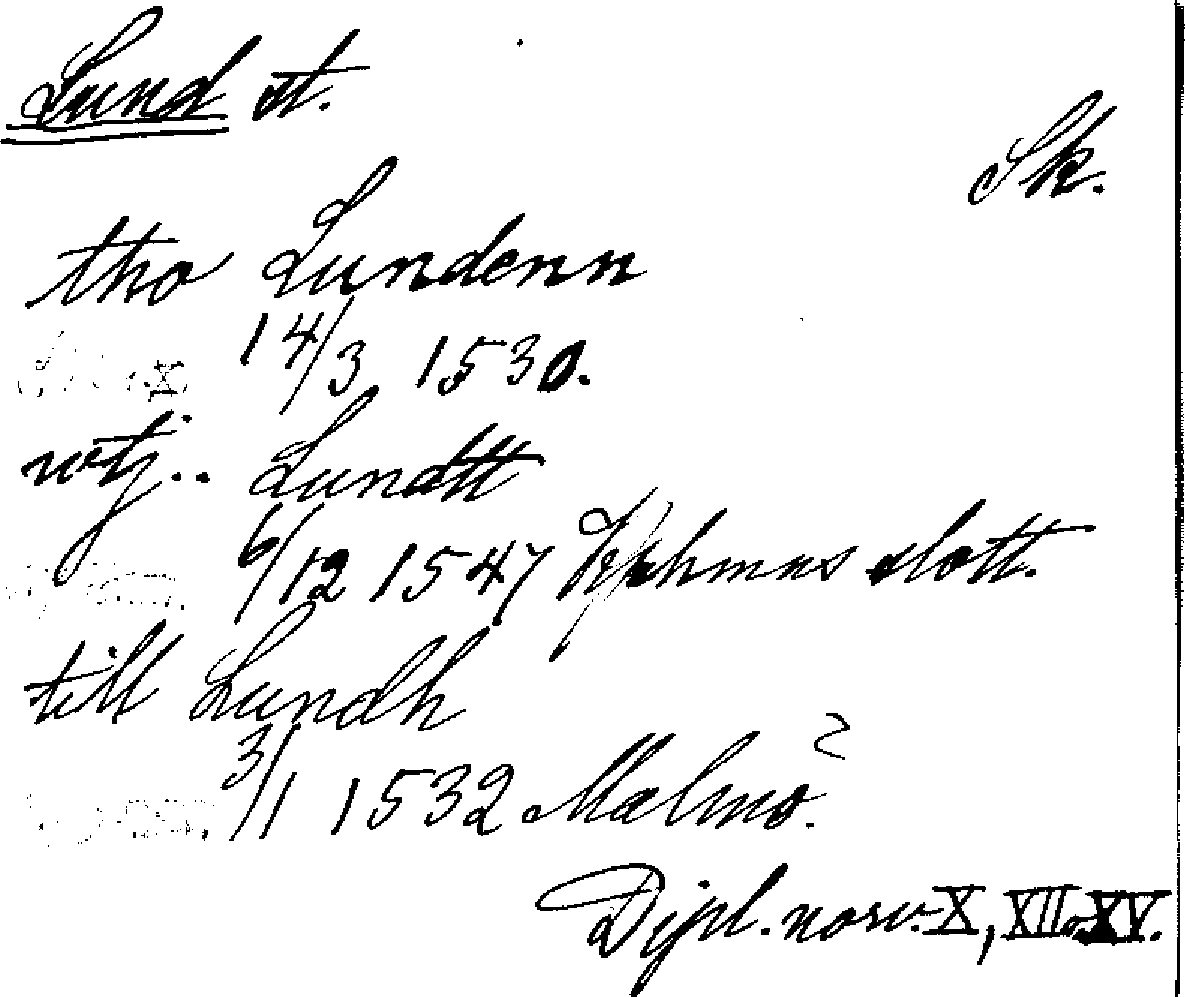 Lund st.
Sk.
tho Lundenn
14/3 1530.
wtj.. Lundtt
6/12 1547 Kphmns slott.
till Lundh
3/1 1532 Malmö.
Dipl. norv. X, XII o. XV.